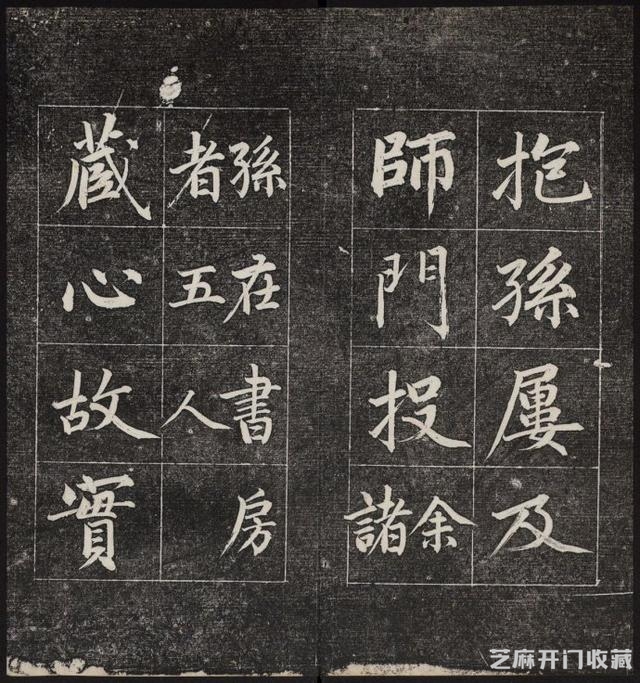 抱孫屢及
師門投余諸
孫在書房
者五人
藏心故實
芝麻开门收藏